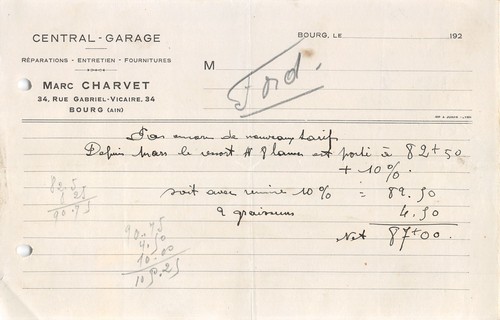 CENTRAL - GARAGE
RÉPARATIONS - ENTRETIEN - FOURNITURES
MARC CHARVET
34, RUE GABRIEL-VICAIRE, 34
BOURG (AIN)
BOURG, LE 192
M
Ford.
Pas encore de nouveaux tarifs
Depuis Mars le ressort AR 8 lames est porté à 82 + 50
+ 10 %.
soit avec remise 10 % = 82.50
2 graisseurs 4.50
Net 87 + 00.
82.5
8 25
90.75
90.75
4.50
10.00
105.25